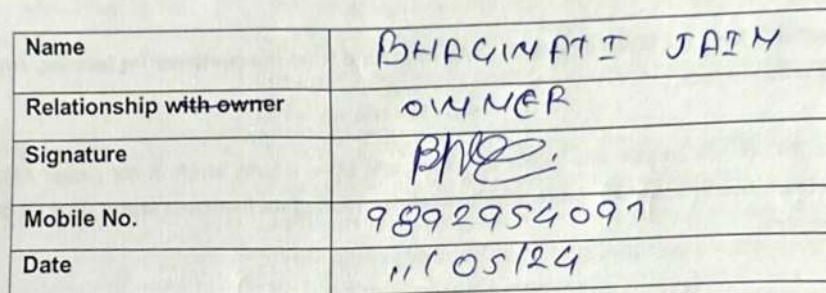 Name BHAGWATI JAIN
Relationship with owner OWNER
Signature
Mobile No. 9892954091
Date 11/05/24